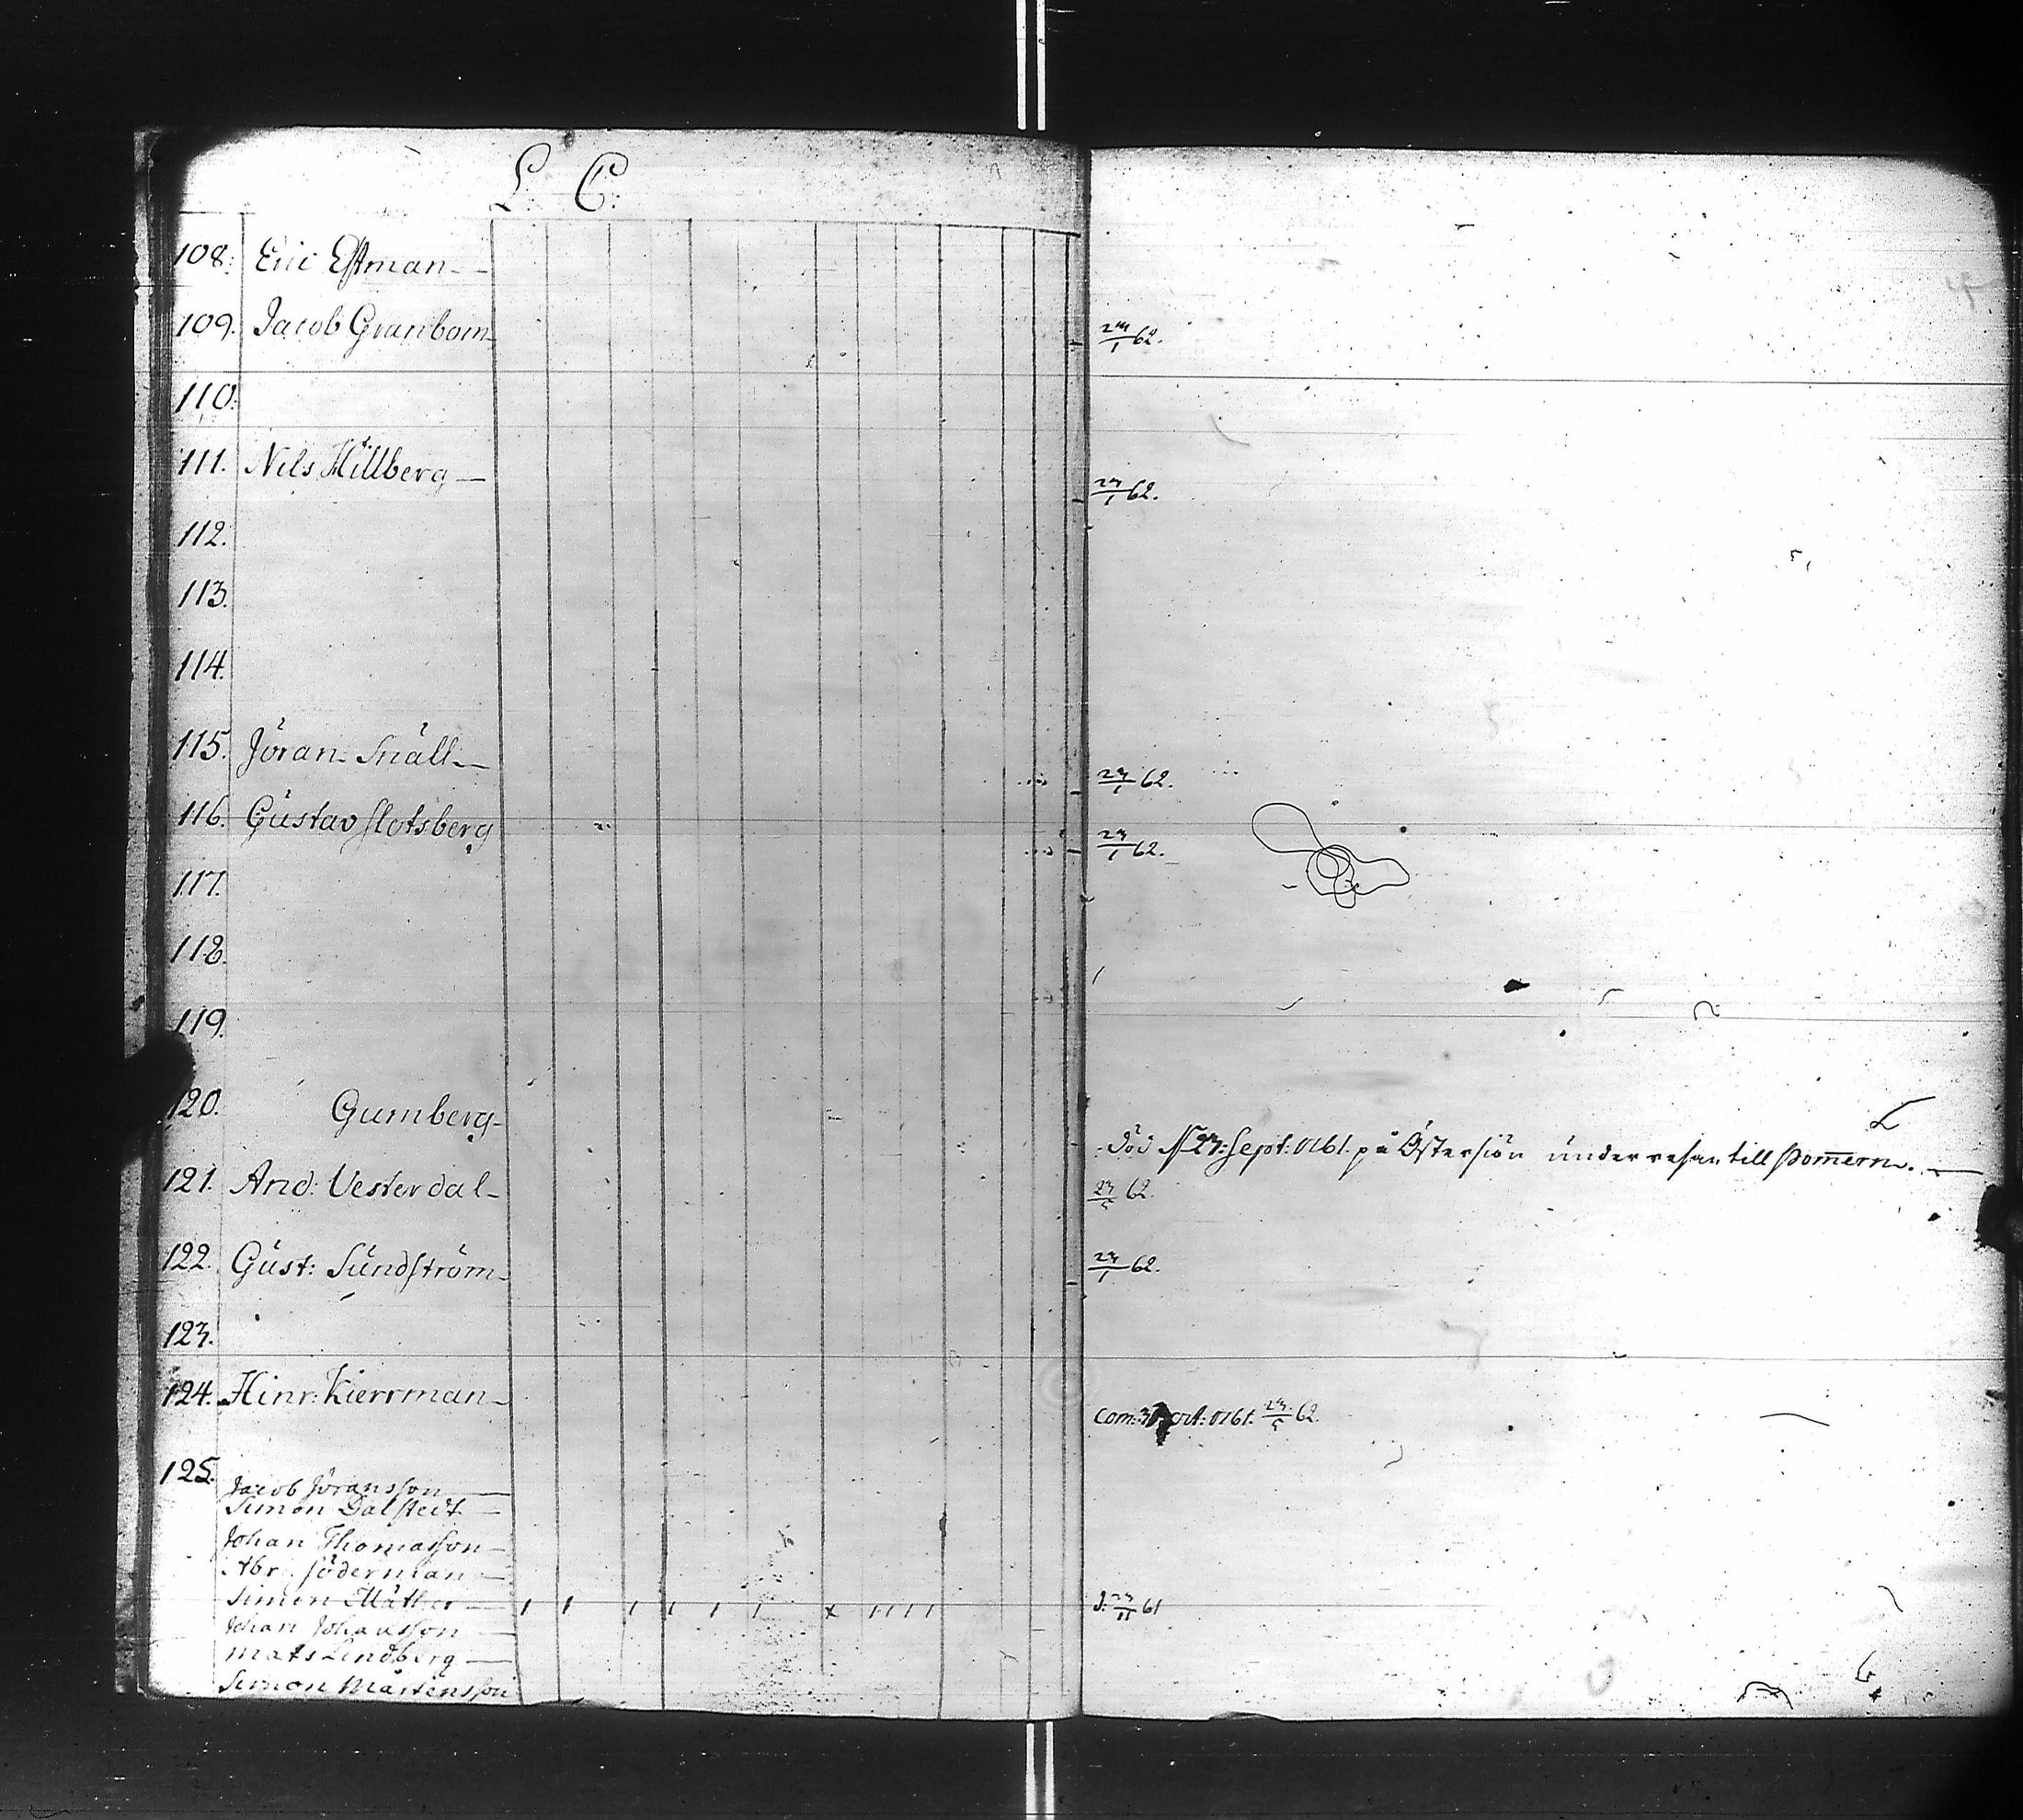 L. C:
108: Eric Estman
109. Jacob Granbom 23/1 62.
110:
111. Nils Hillberg 23/1 62.
112.
113.
114.
115. Jöran Snäll 23/1 62.
116. Gustav Slotsberg 23/1 62.
117.
118.
119.
120. Gumberg död 23: Sept: 1761. på Östersiön under resan till Pomern.
121. And: Vesterdal 23/5 62.
122. Gust: Sundström 23/1 62.
123.
124. Hinr: Kierrman Com: 1761. 23/5 62.
125.
Jacob Jöransson
Simon Dalstedt
Johan Thomasson
Abr: Söderman
Simon 23/11 61
Johan Johansson
Mats Lindberg
Simon Mårtensson